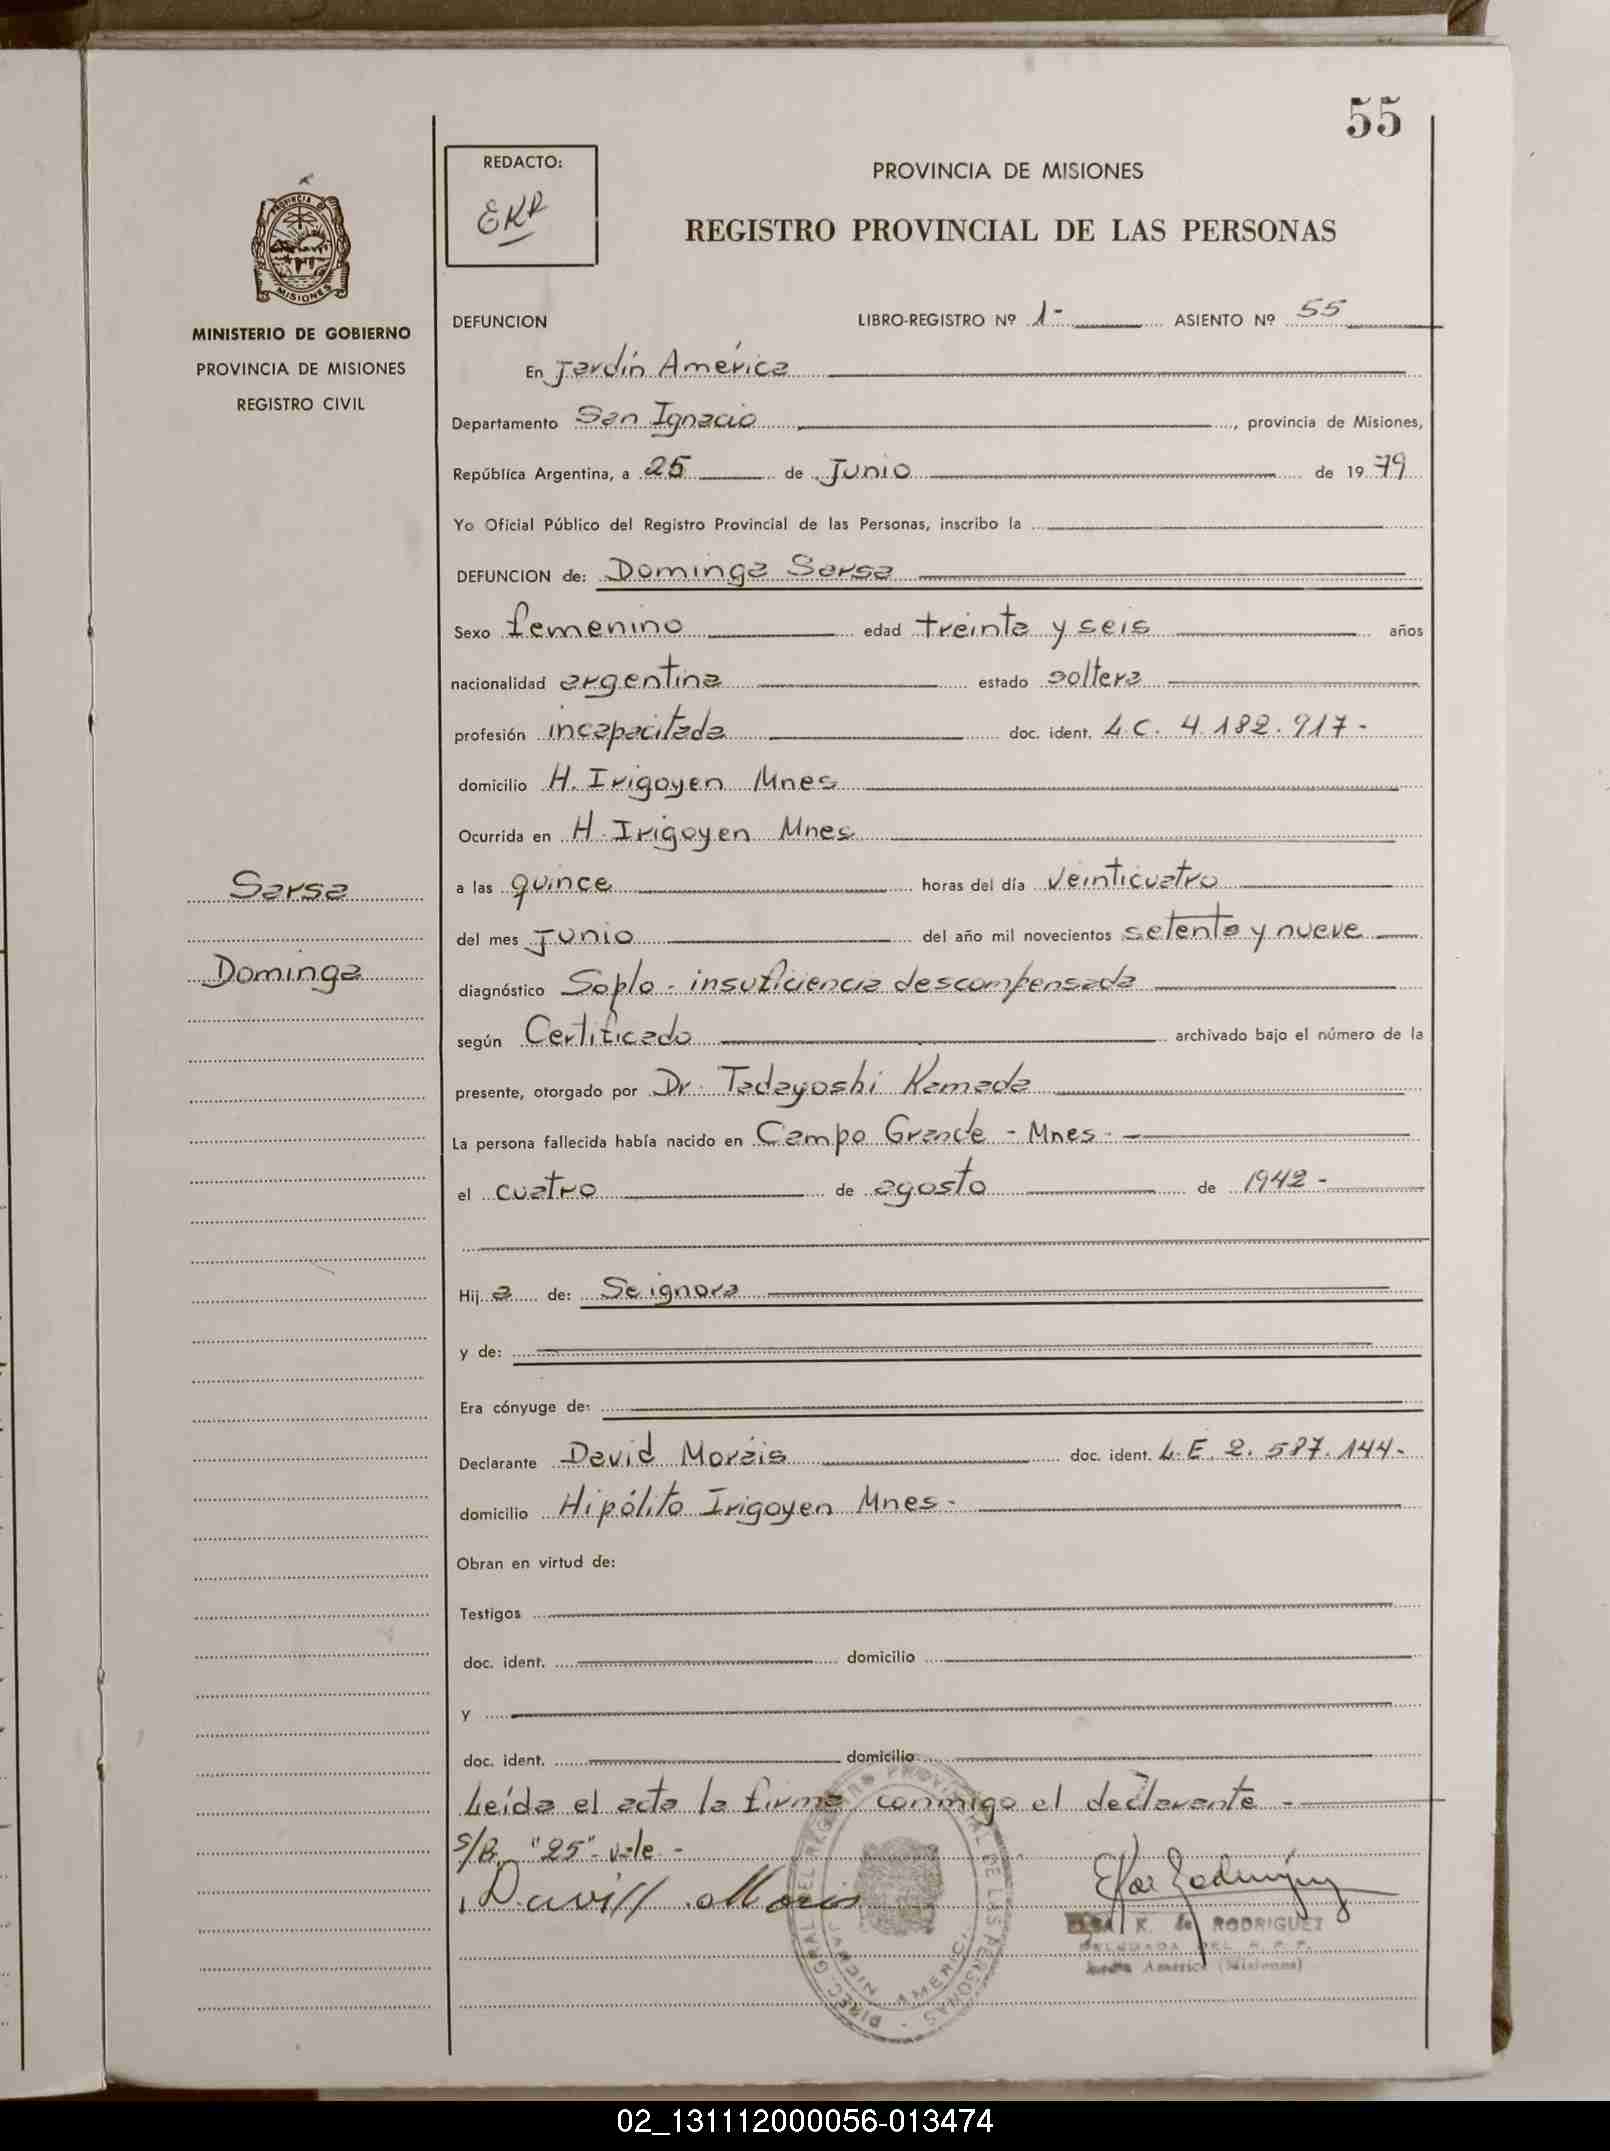 55
REDACTO:
EKR
PROVINCIA DE MISIONES
REGISTRO PROVINCIAL DE LAS PERSONAS
PROVINCIA DE
MISIONES
MINISTERIO DE GOBIERNO
PROVINCIA DE MISIONES
REGISTRO CIVIL
DEFUNCION LIBRO-REGISTRO Nº 1- ASIENTO Nº 55
En Jardín América
Departamento San Ignacio, provincia de Misiones,
República Argentina, a 25 de Junio de 1979
Yo Oficial Público del Registro Provincial de las Personas, inscribo la
DEFUNCION de: Dominga Sarsa
Sexo femenino edad treinta y seis años
nacionalidad argentina estado soltera
profesión incapacitada doc. ident. L.C. 4.182.917-
domicilio H. Irigoyen Mnes
Ocurrida en H. Irigoyen Mnes
Sarsa
a las quince horas del día veinticuatro
del mes Junio del año mil novecientos setenta y nueve
Dominga
diagnóstico Soplo - insuficiencia descompensada
según Certificado archivado bajo el número de la
presente, otorgado por Dr. Tadayoshi Kamada
La persona fallecida había nacido en Campo Grande - Mnes.-
el cuatro de agosto de 1942-
Hija de: Se ignora
y de:
Era cónyuge de:
Declarante David Moráis doc. ident. L.E. 2.587.144-
domicilio Hipólito Irigoyen Mnes-
Obran en virtud de:
Testigos
doc. ident. domicilio
y
doc. ident. domicilio
Leída el acta la firma conmigo el declarante -
s/R. "25" - vale -
DIREC. GRAL. DEL REGISTRO PROVINCIAL DE LAS PERSONAS
JARDIN AMERICA
K. de RODRIGUEZ
DELEGADA DEL R. P. P.
Jardín América (Misiones)
02_131112000056-013474